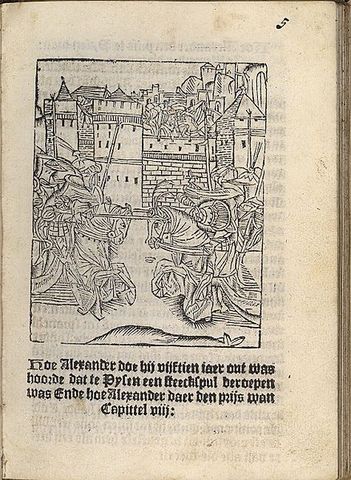 5
Hoe Alexander doe hij vijftien iaer out was
hoorde dat te Pysen een steeckspul beroepen
was Ende hoe Alexander daer den prijs wan
Capittel viij: